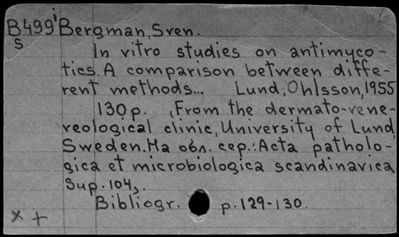 B499 Bergman, Sven.
S
In vitro studies on antimyco-
tics. A comparison between diffe-
rent methods... Lund, Ohlsson, 1955
130p. (From the dermato-vene-
reological clinic, University of Lund
Sweden. На обл. сер.: Acta patholo-
gica et microbiologica scandinavica
Sup. 104).
Bibliogr. p. 129-130.
x +